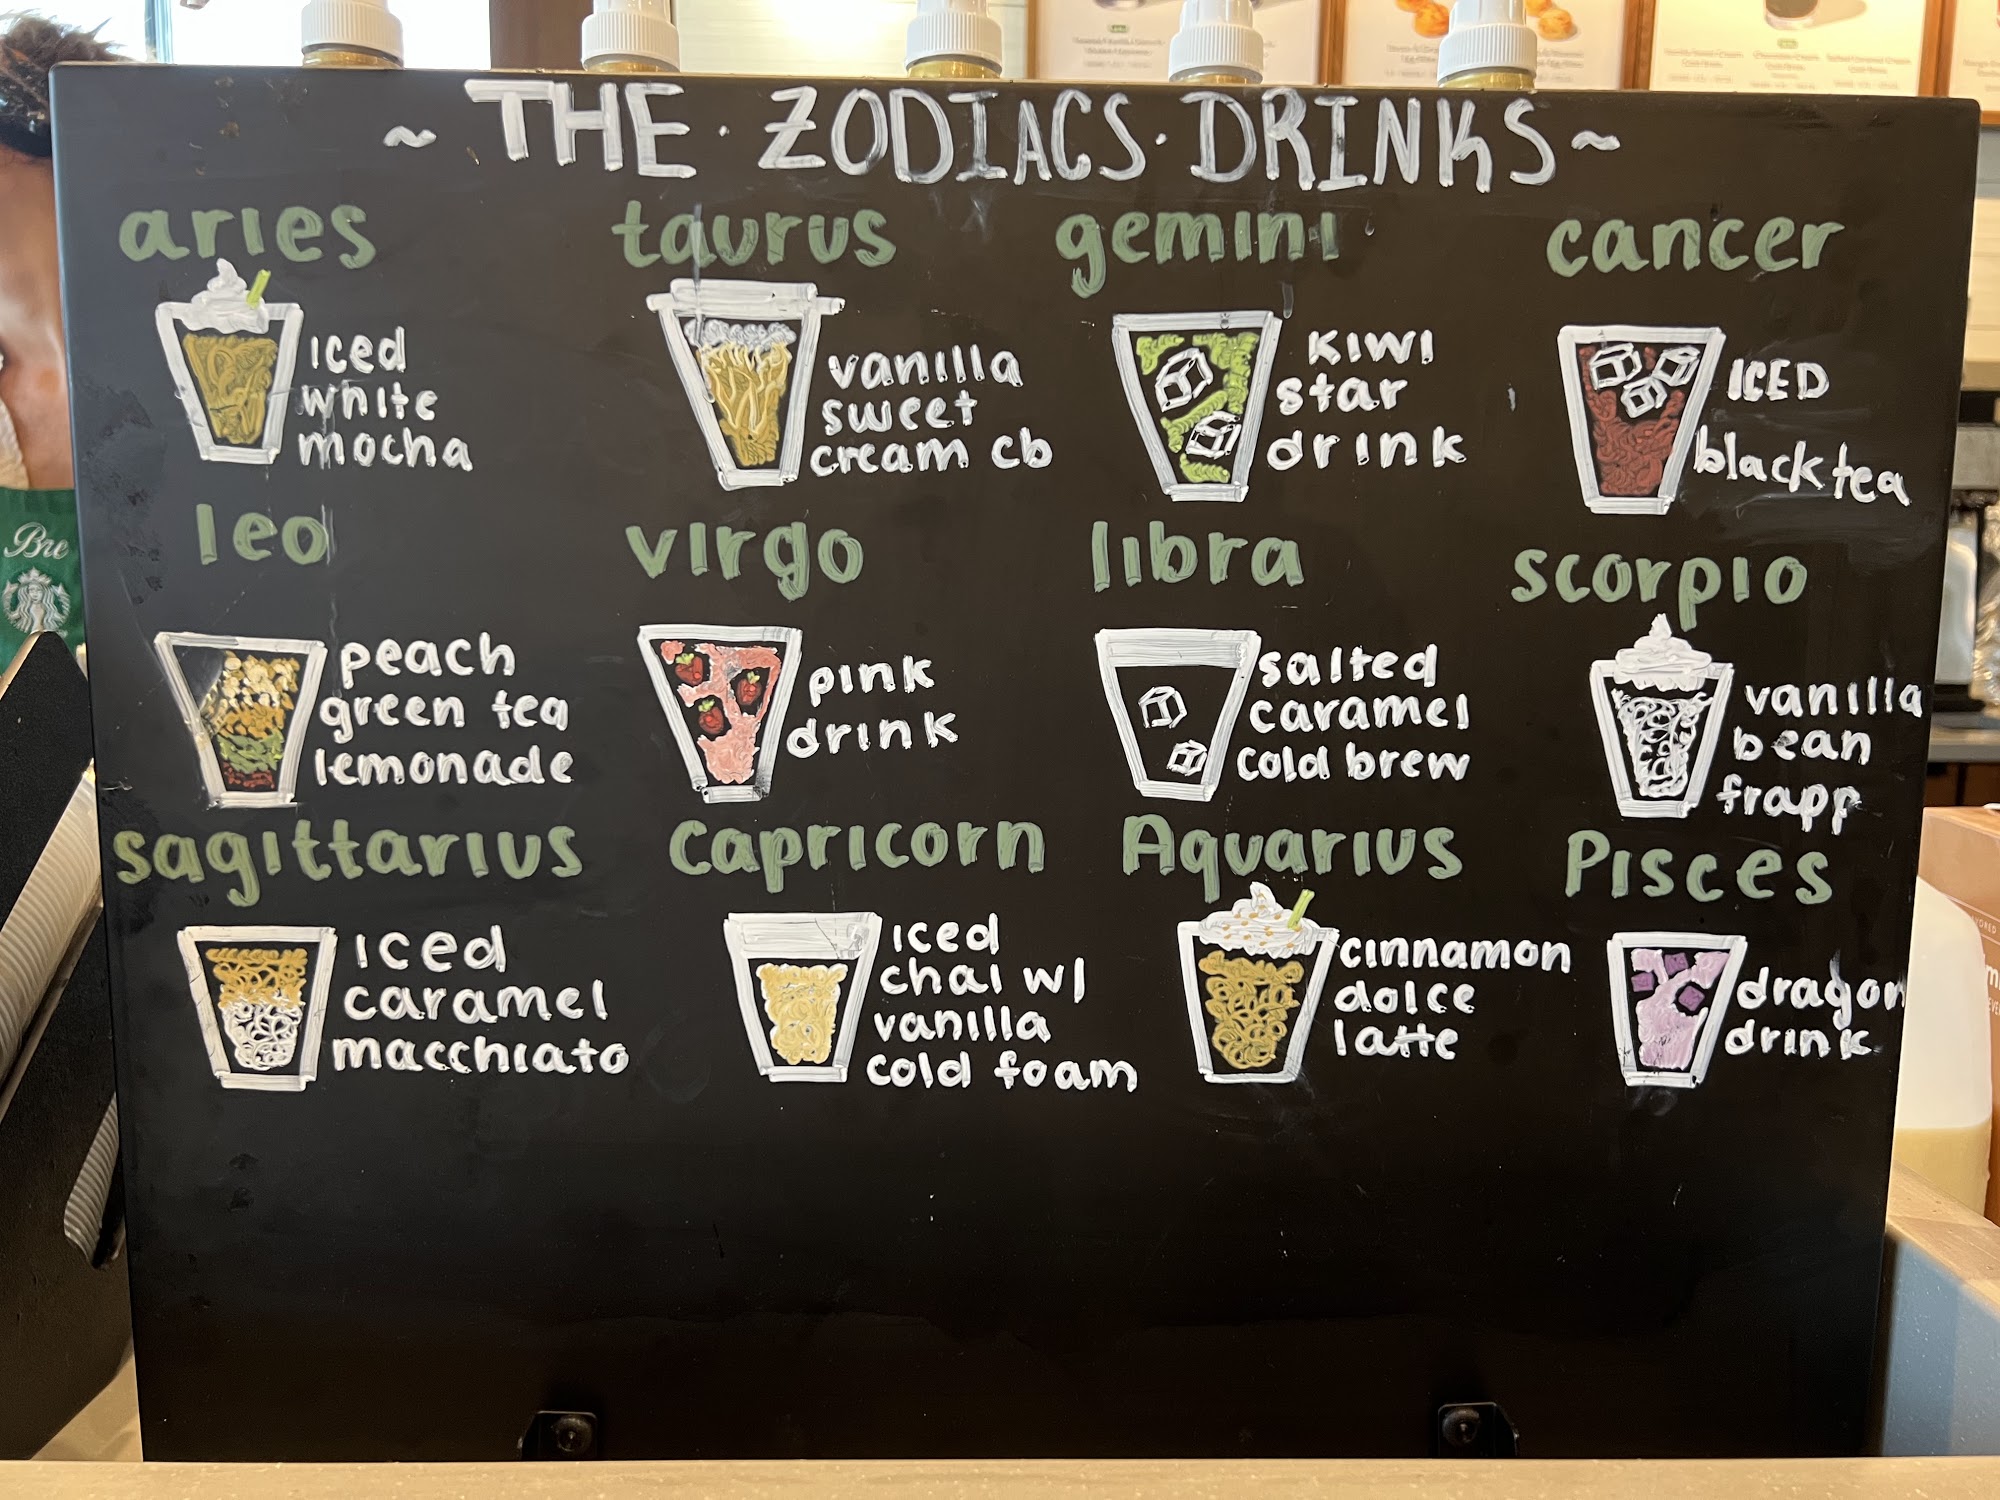 ~ THE · ZODIACS · DRINKS ~
aries
iced
white
mocha
taurus
vanilla
sweet
cream cb
gemini
kiwi
star
drink
cancer
ICED
black tea
leo
peach
green tea
lemonade
virgo
pink
drink
libra
salted
caramel
cold brew
scorpio
vanilla
bean
frapp
sagittarius
iced
caramel
macchiato
capricorn
iced
chai w/
vanilla
cold foam
Aquarius
cinnamon
dolce
latte
Pisces
dragon
drink
Bre